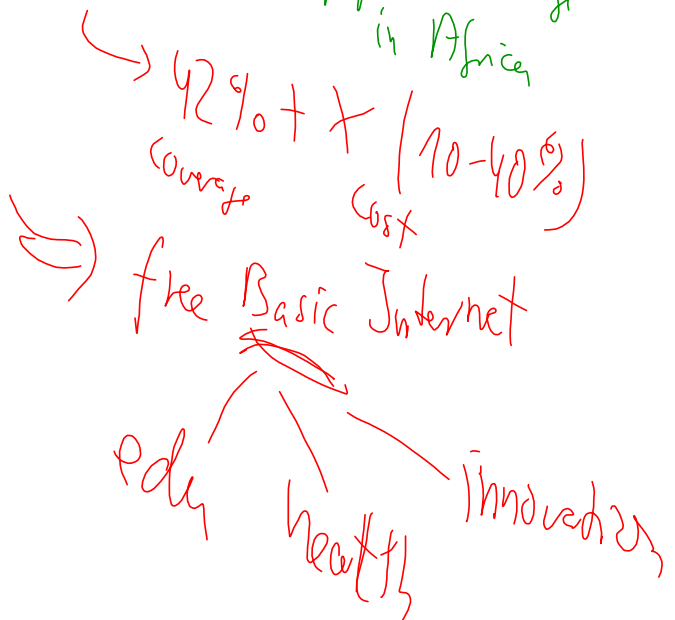 in Africa
42% + X (10-40%)
coverage
cost
free Basic Internet
edu
health
innovation